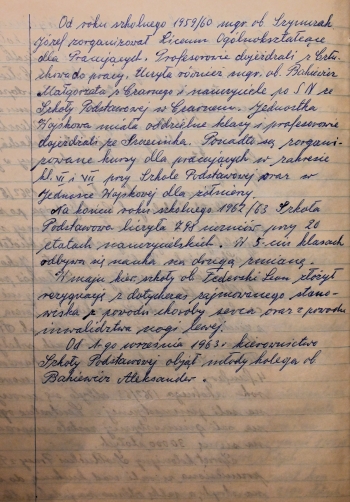 Od roku szkolnego 1959/60 mgr. ob. Szymczak
Józef zorganizował Liceum Ogólnokształcące
dla Pracujących. Profesorowie dojeżdżali z
do pracy. Uczyła również mgr. ob. Bahiewicz
Małgorzata z Czarnego i nauczyciele po S.N. ze
Szkoły Podstawowej w Czarnem. Jednostka
Wojskowa miała oddzielne klasy i profesorowie
dojeżdżali ze Szczecinka. Ponadto są zorgani-
zowane kursy dla pracujących w zakresie
kl. VI i VII przy Szkole Podstawowej oraz w
Jednostce Wojskowej dla żołnierzy.
Na koniec roku szkolnego 1962/63 Szkoła
Podstawowa liczyła 798 uczniów przy 20
etatach nauczycielskich. W 5-ciu klasach
odbywa się nauka na drugą zmianę.
W maju kier. szkoły ob. Fedorski Leon złożył
rezygnację z dotychczas zajmowanego stano-
wiska z powodu choroby serca oraz z powodu
inwalidztwa nogi lewej.
Od 1-go września 1963 r. kierownictwo
Szkoły Podstawowej objął młody kolega ob.
Bahiewicz Aleksander.